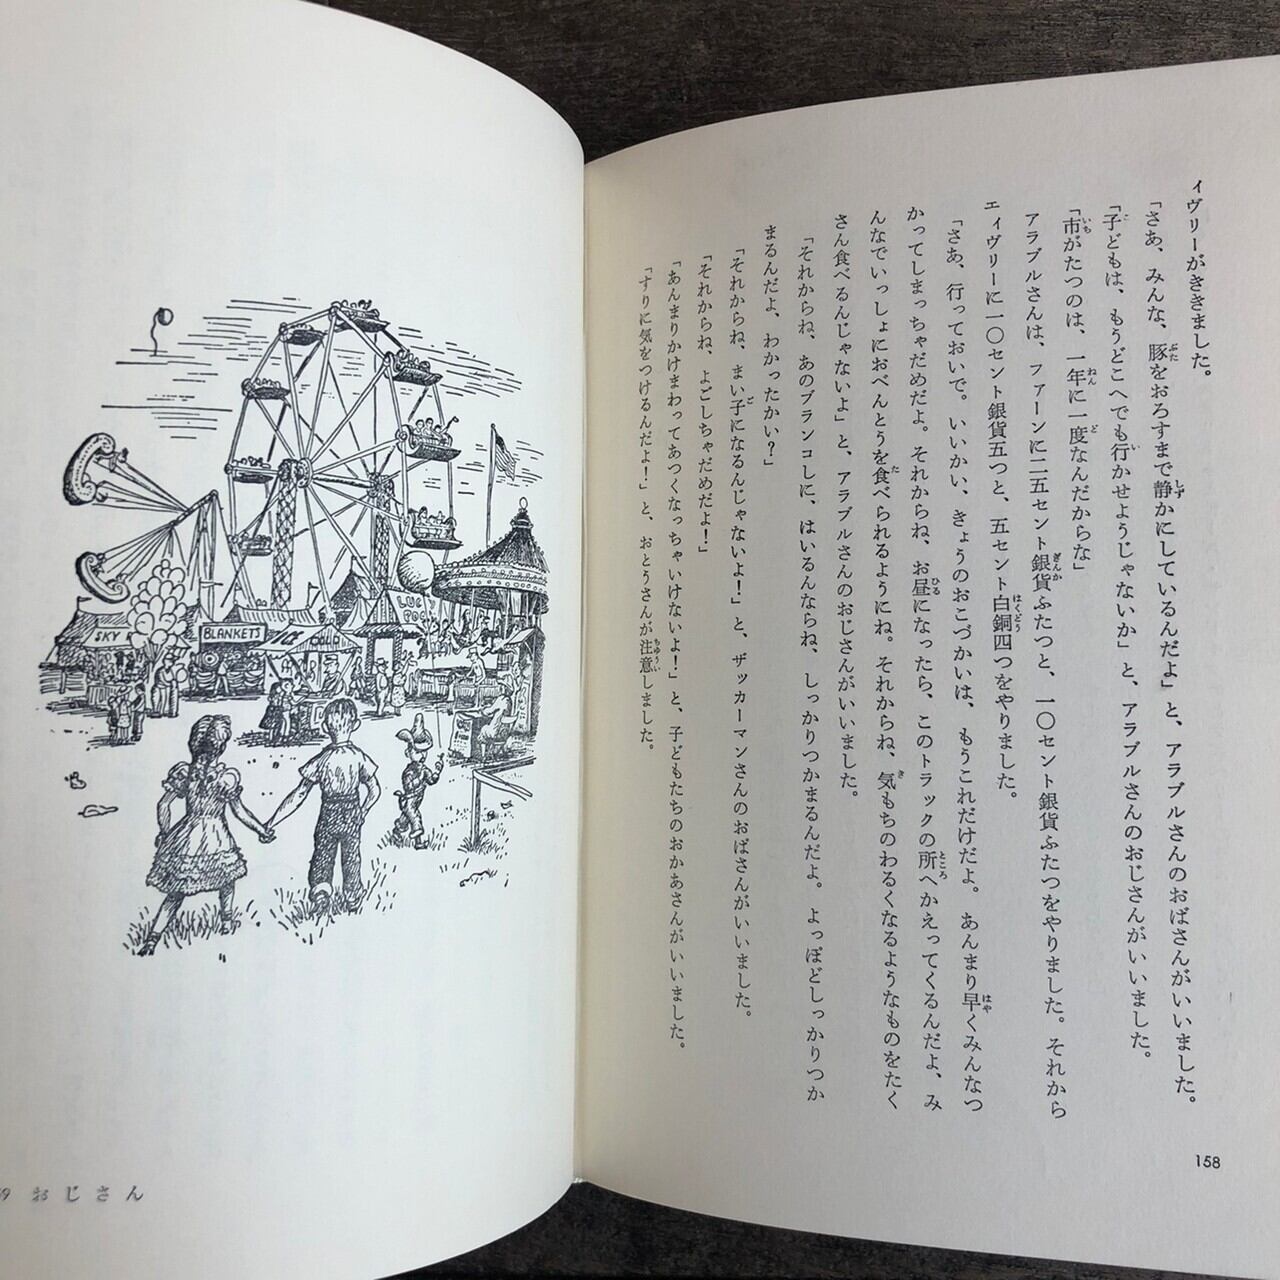 ィヴリーがききました。
「さあ、みんな、豚をおろすまで静かにしているんだよ」と、アラブルさんのおばさんがいいました。
「子どもは、もうどこへでも行かせようじゃないか」と、アラブルさんのおじさんがいいました。
「市がたつのは、一年に一度なんだからな」
アラブルさんは、ファーンに二五セント銀貨ふたつと、一〇セント銀貨ふたつをやりました。それから
エィヴリーに一〇セント銀貨五つと、五セント白銅四つをやりました。
「さあ、行っておいで。いいかい、きょうのおこづかいは、もうこれだけだよ。あんまり早くみんなつ
かってしまっちゃだめだよ。それからね、お昼になったら、このトラックの所へかえってくるんだよ、み
んなでいっしょにおべんとうを食べられるようにね。それからね、気もちのわるくなるようなものをたく
さん食べるんじゃないよ」と、アラブルさんのおじさんがいいました。
「それからね、あのブランコしに、はいるんならね、しっかりつかまるんだよ。よっぽどしっかりつか
まるんだよ、わかったかい？」
「それからね、まい子になるんじゃないよ！」と、ザッカーマンさんのおばさんがいいました。
「それからね、よごしちゃだめだよ！」
「あんまりかけまわってあつくなっちゃいけないよ！」と、子どもたちのおかあさんがいいました。
「すりに気をつけるんだよ！」と、おとうさんが注意しました。
158
SKY
BLANKETS
ICE
9 おじさん